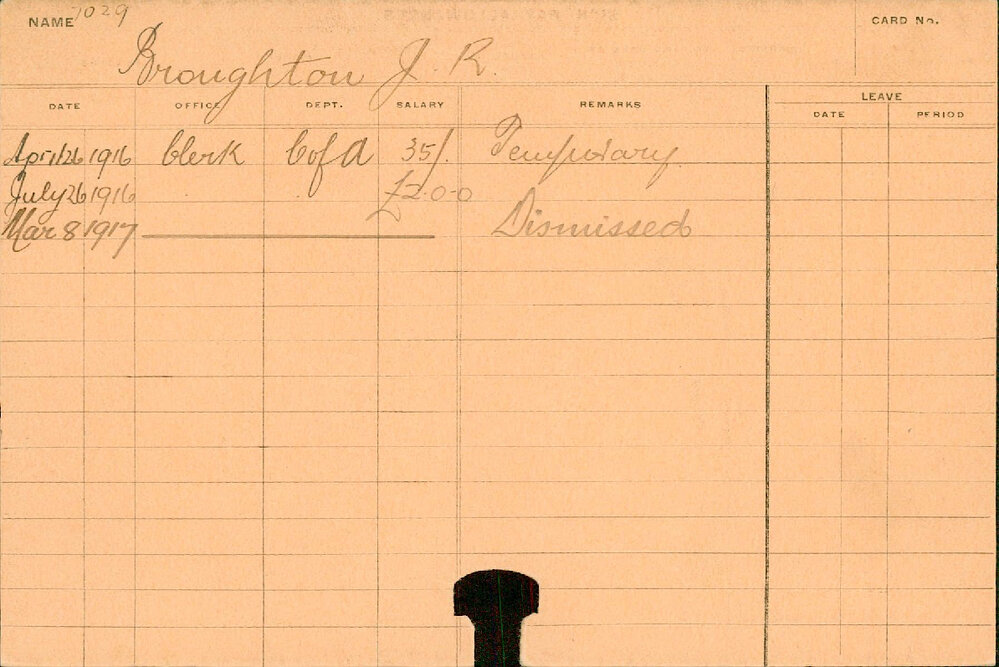 NAME 7029 CARD No.
Broughton J. R.
LEAVE
DATE OFFICE DEPT. SALARY REMARKS DATE PERIOD
April 26 1916 Clerk C of A 35/. Temporary
July 26 1916 £2-0-0
Mar 8 1917 Dismissed